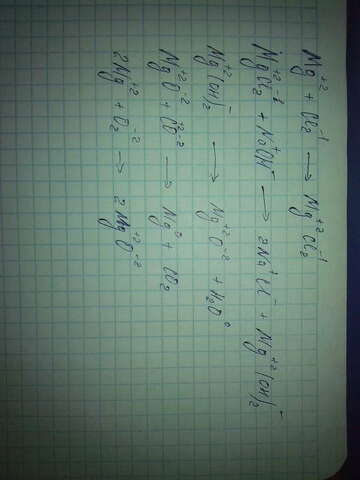 Mg⁺² + Cl₂⁻¹ → Mg⁺²Cl₂⁻¹
Mg⁺²Cl₂⁻¹ + Na⁺OH⁻ → 2Na⁺Cl⁻ + Mg⁺²(OH)₂⁻
Mg⁺²(OH)₂⁻ → Mg⁺²O⁻² + H₂O⁰
Mg⁺²O⁻² + C⁺²O⁻² → Mg⁰ + CO₂
2Mg⁺² + O₂⁻² → 2Mg⁺²O⁻²